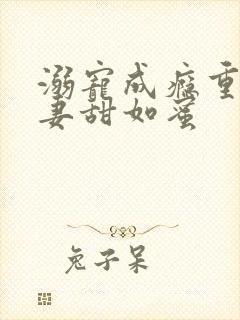 溺寵成癮重
妻甜如蜜
兔子呆